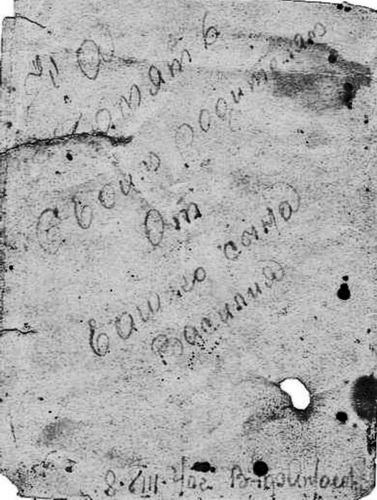 На
память
Своим родителям
От
вашего сына
Василия
8. VIII. 40г.